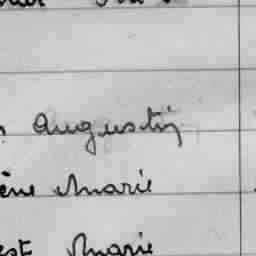 Augustin
ène Marie
est Marie